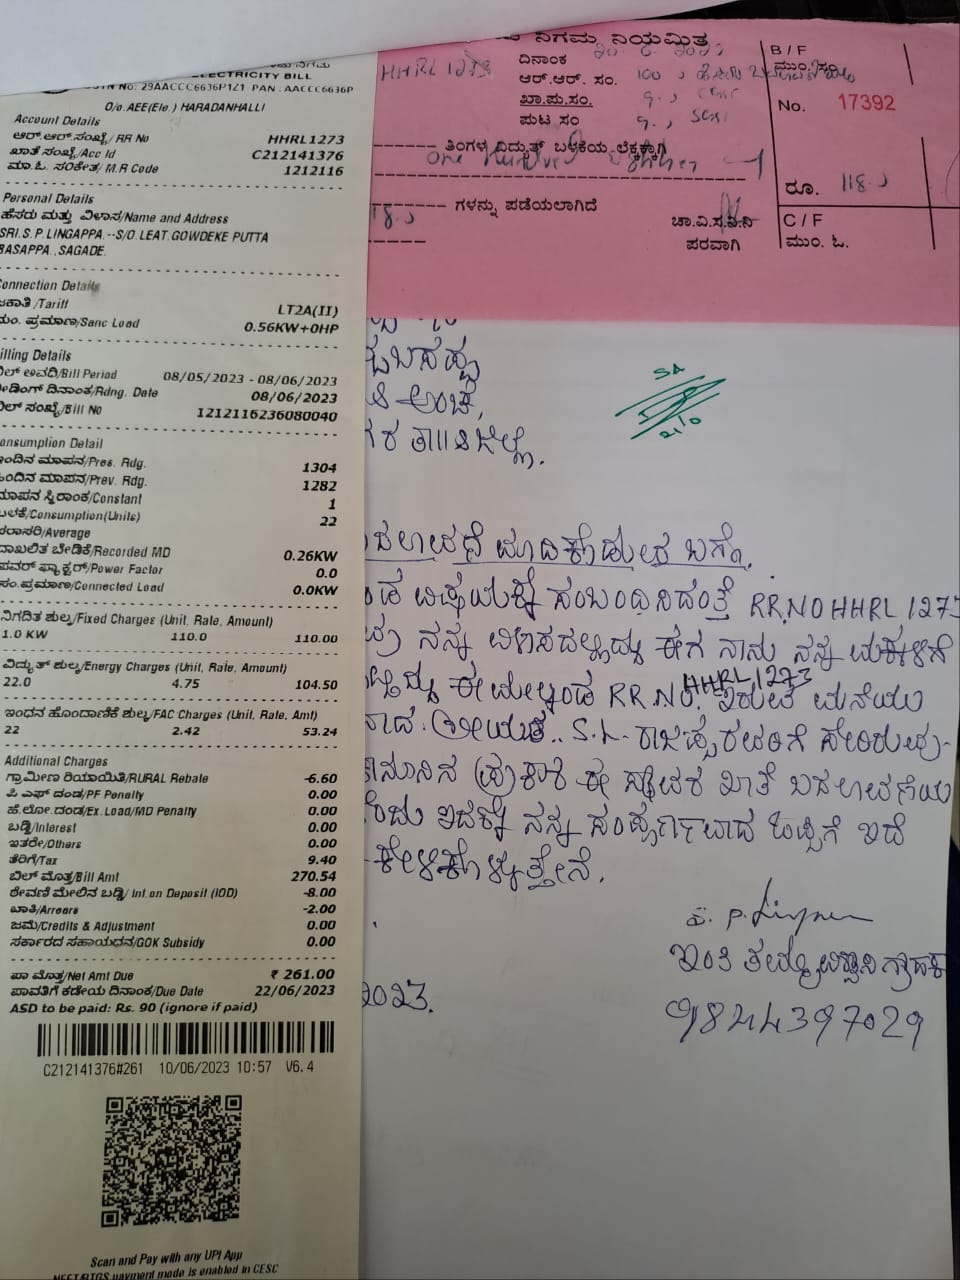 ELECTRICITY BILL
No: 29AACCC6636P1Z1 PAN: AACCC6636P
O/o.AEE(Ele.) HARADANHALLI
Account Details
ಆರ್.ಆರ್.ಸಂಖ್ಯೆ/ RR No HHRL1273
ಖಾತೆ ಸಂಖ್ಯೆ/Acc Id C212141376
ಮಾ.ಓ. ಸಂಕೇತ/ M.R Code 1212116
Personal Details
ಹೆಸರು ಮತ್ತು ವಿಳಾಸ/Name and Address
SRI.S.P.LINGAPPA.--S/O.LEAT.GOWDEKE PUTTA
BASAPPA.,SAGADE.
Connection Details
ಜಕಾತಿ /Tariff LT2A(II)
ಮಂ. ಪ್ರಮಾಣ/Sanc Load 0.56KW+0HP
Billing Details
ಬಿಲ್ ಅವಧಿ/Bill Period 08/05/2023 - 08/06/2023
ರೀಡಿಂಗ್ ದಿನಾಂಕ/Rdng. Date 08/06/2023
ಬಿಲ್ ಸಂಖ್ಯೆ/Bill No 1212116236080040
Consumption Detail
ಇಂದಿನ ಮಾಪನ/Pres. Rdg. 1304
ಹಿಂದಿನ ಮಾಪನ/Prev. Rdg. 1282
ಮಾಪನ ಸ್ಥಿರಾಂಕ/Constant 1
ಬಳಕೆ/Consumption(Units) 22
ಸರಾಸರಿ/Average
ದಾಖಲಿತ ಬೇಡಿಕೆ/Recorded MD 0.26KW
ಪವರ್ ಫ್ಯಾಕ್ಟರ್/Power Factor 0.0
ಸಂ.ಪ್ರಮಾಣ/Connected Load 0.0KW
ನಿಗದಿತ ಶುಲ್ಕ/Fixed Charges (Unit, Rate, Amount)
1.0 KW 110.0 110.00
ವಿದ್ಯುತ್ ಶುಲ್ಕ/Energy Charges (Unit, Rate, Amount)
22.0 4.75 104.50
ಇಂಧನ ಹೊಂದಾಣಿಕೆ ಶುಲ್ಕ/FAC Charges (Unit, Rate, Amt)
22 2.42 53.24
Additional Charges
ಗ್ರಾಮೀಣ ರಿಯಾಯಿತಿ/RURAL Rebate -6.60
ಪಿ ಎಫ್ ದಂಡ/PF Penalty 0.00
ಹೆ.ಲೋ.ದಂಡ/Ex. Load/MD Penalty 0.00
ಬಡ್ಡಿ/Interest 0.00
ಇತರೇ/Others 0.00
ತೆರಿಗೆ/Tax 9.40
ಬಿಲ್ ಮೊತ್ತ/Bill Amt 270.54
ಠೇವಣಿ ಮೇಲಿನ ಬಡ್ಡಿ/ Int.on Deposit (IOD) -8.00
ಬಾಕಿ/Arrears -2.00
ಜಮೆ/Credits & Adjustment 0.00
ಸರ್ಕಾರದ ಸಹಾಯಧನ/GOK Subsidy 0.00
ಪಾ ಮೊತ್ತ/Net Amt Due ₹ 261.00
ಪಾವತಿಗೆ ಕಡೇಯ ದಿನಾಂಕ/Due Date 22/06/2023
ASD to be paid: Rs. 90 (ignore if paid)
C212141376#261 10/06/2023 10:57 V6.4
Scan and Pay with any UPI App
NEFT/RTGS payment mode is enabled in CESC
ನಿಗಮ ನಿಯಮಿತ
HHRL 1273
ದಿನಾಂಕ
ಆರ್.ಆರ್. ಸಂ. 100
ಖಾ.ಪು.ಸಂ. 9
ಪುಟ ಸಂ 9
B/F
No. 17392
ತಿಂಗಳ ವಿದ್ಯುತ್ ಬಳಕೆಯ ಲೆಕ್ಕಕ್ಕಾಗಿ
One Hundred
ರೂ. 118
18 ಗಳನ್ನು ಪಡೆಯಲಾಗಿದೆ
ಚಾ.ವಿ.ಸ.ನಿ.ನಿ
ಪರವಾಗಿ
C/F
ಮುಂ. ಓ.
ಬಸಪ್ಪ
ಅಂಚೆ,
ತಾ॥ ಜಿಲ್ಲೆ.
SA
ಬದಲಾವಣೆ ಮಾಡಿಕೊಡುವ ಬಗ್ಗೆ.
ವಿಷಯಕ್ಕೆ ಸಂಬಂದಿಸಿದಂತೆ RR.NO HHRL 1273
ನನ್ನ ವಿಳಾಸದಲ್ಲಿದ್ದು ಈಗ ನಾನು ನನ್ನ ಮಕ್ಕಳಿಗೆ
ಈ ಮೇಲ್ಕಂಡ RR.NO. HHRL1273 ಇರುವ ಮನೆಯು
ಶ್ರೀಯುತ. S.L. ರಾಜಪ್ಪರವರಿಗೆ ಸೇರಿರುವು-
ಕಾನೂನಿನ ಪ್ರಕಾರ ಈ ಸ್ಥಾವರ ಖಾತೆ ಬದಲಾವಣೆಯ
ಇದಕ್ಕೆ ನನ್ನ ಸಂಪೂರ್ಣವಾದ ಒಪ್ಪಿಗೆ ಇದೆ
ಕೇಳಿಕೊಳ್ಳುತ್ತೇನೆ.
ಇಂತಿ ತಮ್ಮ ವಿಶ್ವಾಸಿ ಗ್ರಾಹಕ
2023.
9844397029